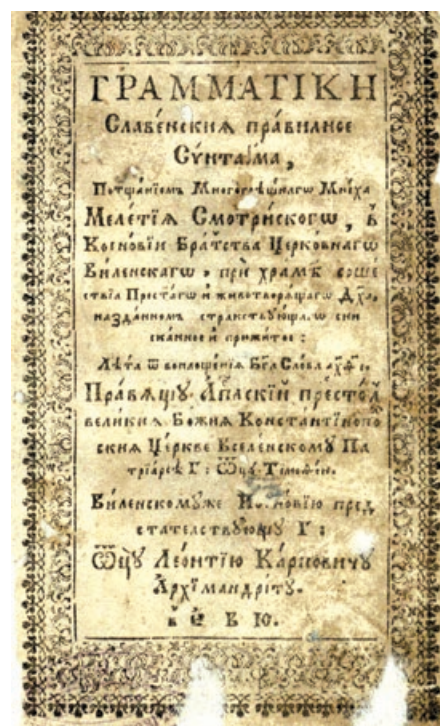 ГРАММАТІКИ
Славе́нскиѧ пра́вилное
Сѵ́нтаґма,
Потща́нїемъ Многогрѣ́шнагѡ Мни́ха
Меле́тїѧ Смотри́скогѡ, в̾
Коеновїи Бра́тства Церко́внагѡ
Ви́ленскагѡ, при́ хра́мѣ соше
ствїѧ Прест҃а́гѡ и҆ животворѧ́щагѡ Дх҃а,
назда́нномъ стра́нствꙋющагѡ сни
ска́нное и҆ прижи́тое:
Лѣ́та ѿ воплоще́нїѧ Бг҃а Сло́ва
Пра́вѧщꙋ А҆пⷭлскїй престо́лъ
вели́киѧ Бо́жїѧ Константїнопо
скиѧ Це́ркве Вселе́нскомꙋ Па
трїа́рсѣ Г: Ѿцꙋ Тїмоѳе́ю.
Ви́ленскомꙋже пред
ста́телствꙋющꙋ Г:
Ѿцꙋ̀ Лео́нтїю Ка́рповичꙋ
А҆рхїмандрі́тꙋ.
в̾ Е В Ю.